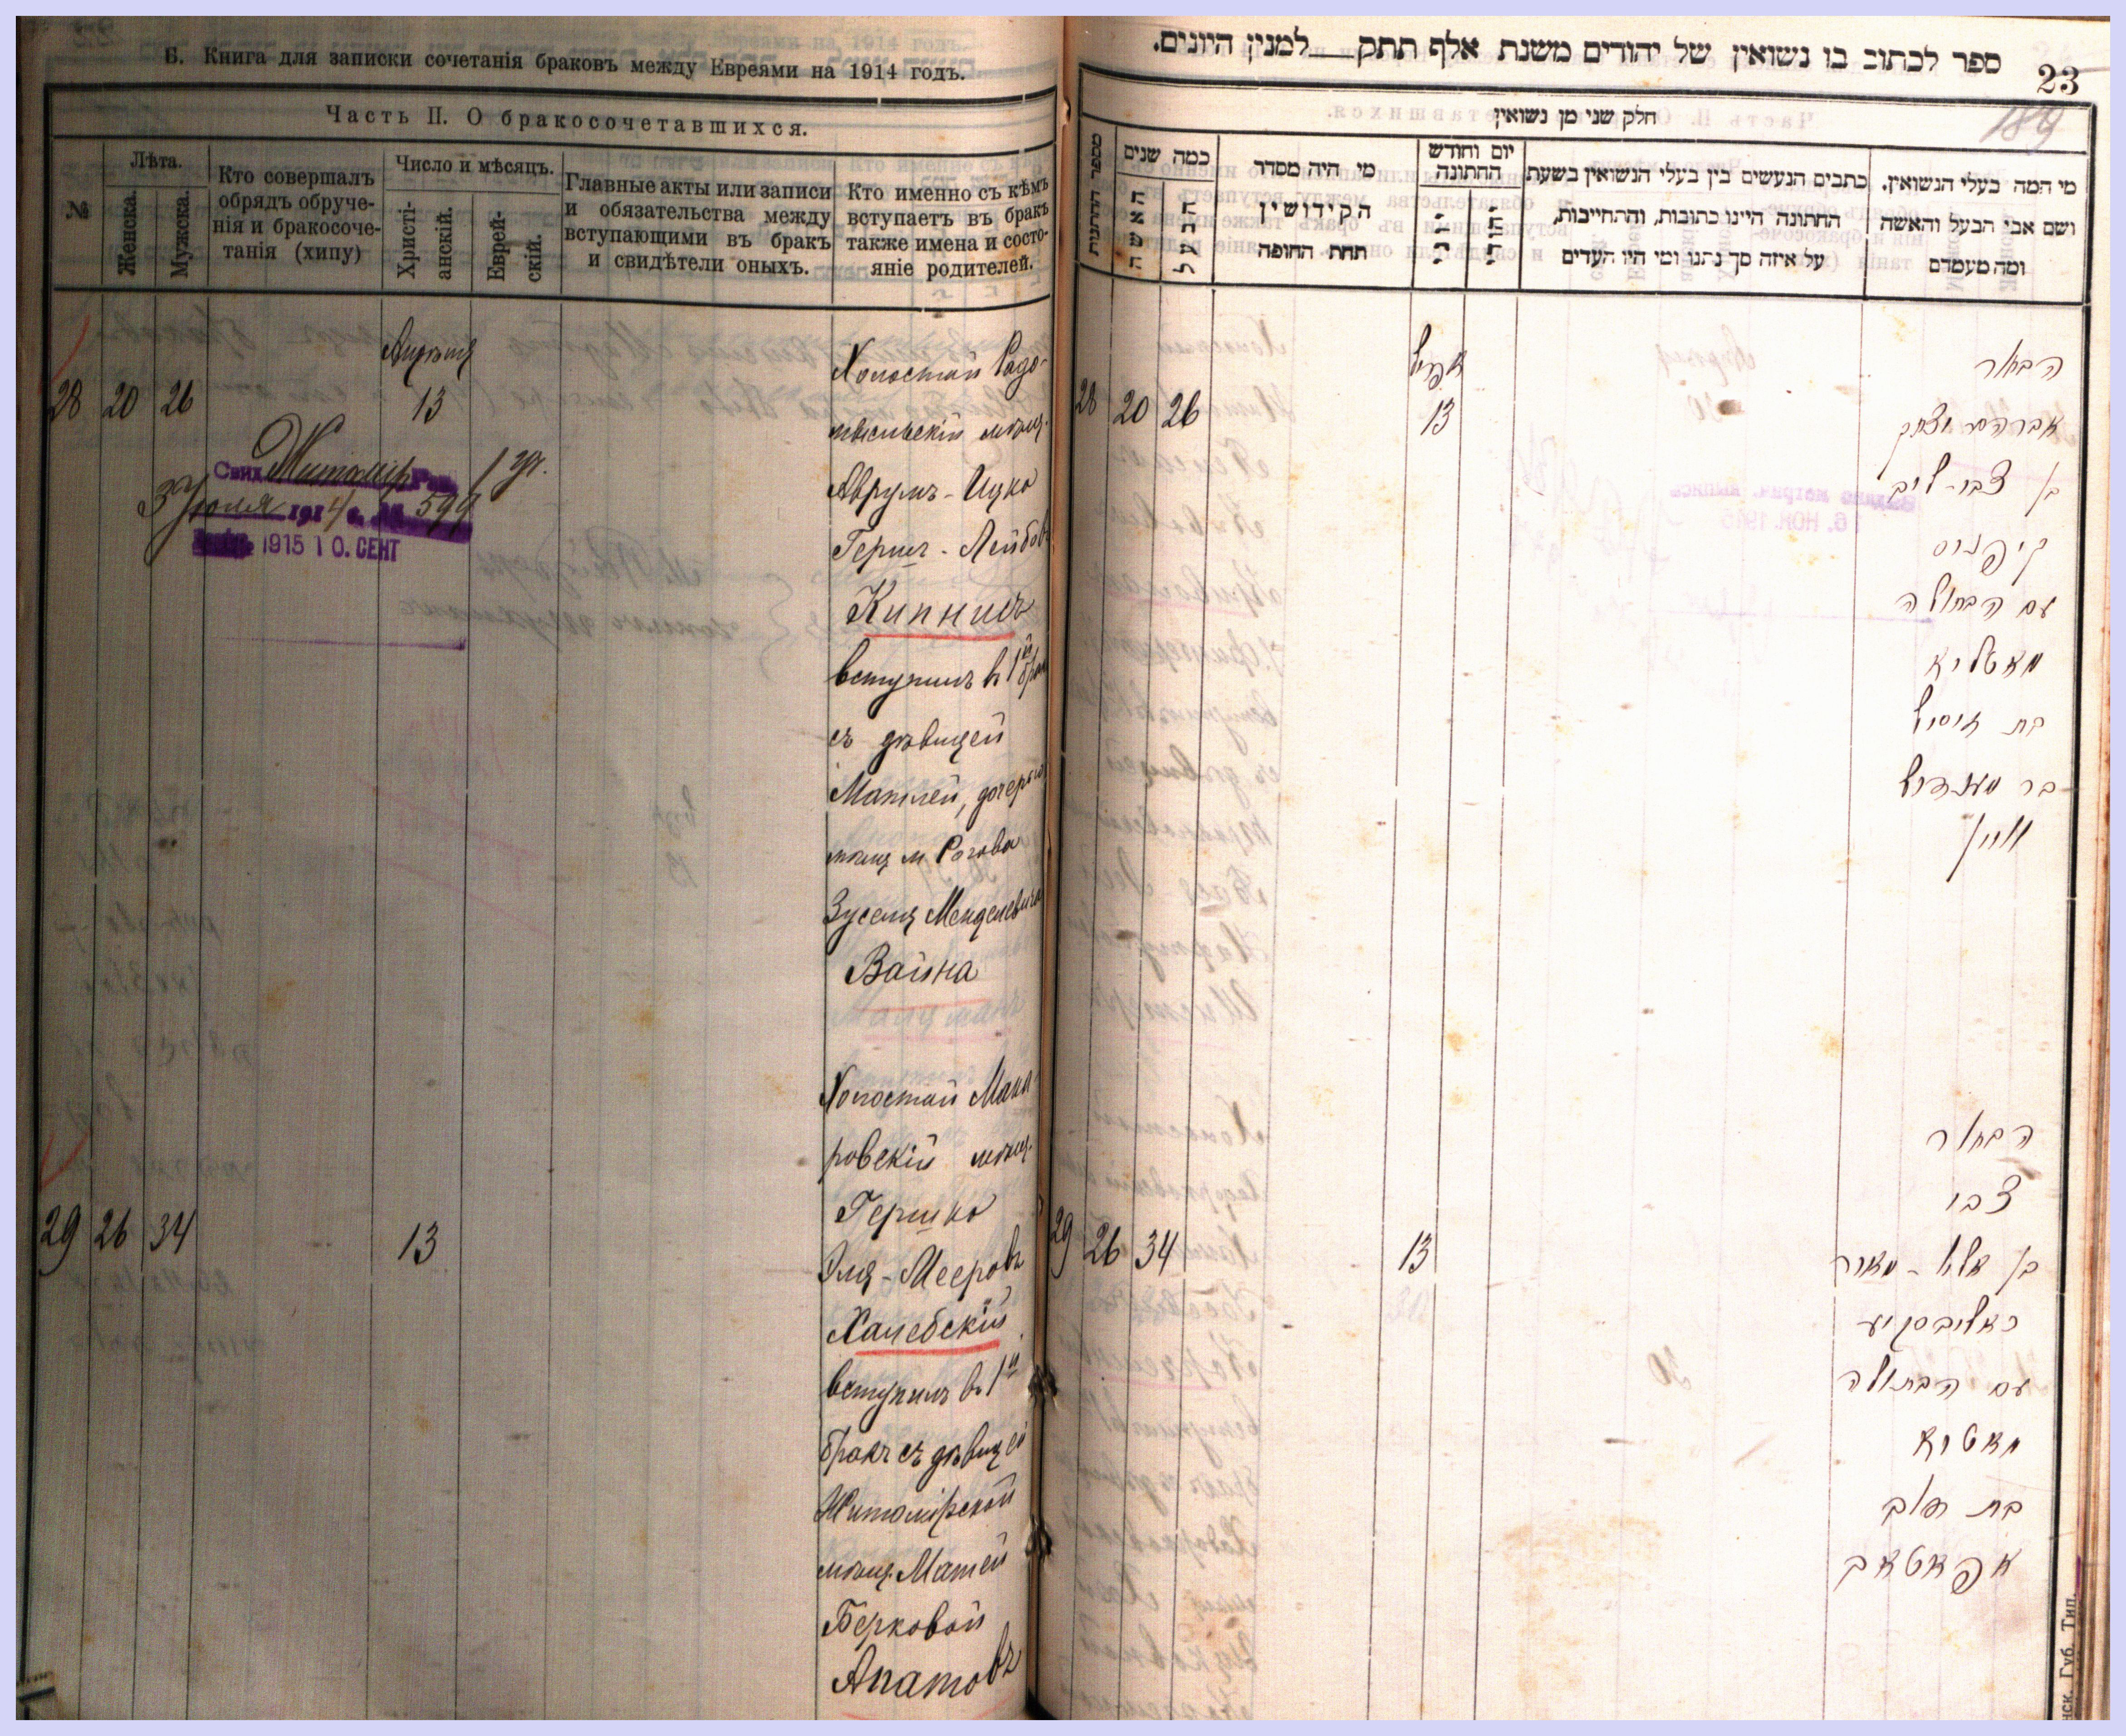 Б. Книга для записки сочетанія браковъ между Евреями на 1914 годъ.
Часть II. О бракосочетавшихся.
№
Лѣта.
Женска.
Мужска.
Кто совершалъ
обрядъ обруче-
нія и бракосоче-
танія (хипу)
Число и мѣсяцъ.
Христі-
анскій.
Еврей-
скій.
Главные акты или записи
и обязательства между
вступающими въ бракъ
и свидѣтели оныхъ.
Кто именно съ кѣмъ
вступаетъ въ бракъ
также имена и состо-
яніе родителей.
28 20 26
Апрѣля
13
Житомір
3 Іюля 1914 г. № 599
1915 10. СЕНТ
Холостой Радо-
мысльскій мѣщ.
Аврумъ-Ицко
Герш-Лейбовъ
Кипнисъ
вступилъ въ 1й бракъ
съ дѣвицей
Матлей, дочерью
мѣщ м Рогова
Зуселя Менделевича
Вайна
29 26 34
13
Холостой Мака-
ровскій мѣщ.
Гершко
Эля-Мееровъ
Халебскій
вступилъ въ 1й
бракъ съ дѣвицей
Житомірской
мѣщ. Матей
Берковой
Апатовъ
ספר לכתוב בו נשואין של יהודים משנת אלף תתק למנין היונים.
23
189
חלק שני מן נשואין
מספר החתנות
כמה שנים
האשה
הבעל
מי היה מסדר
הקידושין
תחת החופה
יום וחודש
החתונה
כתבים הנעשים בין בעלי הנשואין בשעת
החתונה היינו כתובות, והתחייבות,
על איזה סך נתנו ומי היו העדים
מי המה בעלי הנשואין.
ושם אבי הבעל והאשה
ומה מעמדם
28 20 26
אפריל
13
הבחור
אברהם יצחק
בן צבי-ליב
קיפניס
עם הבתולה
מאטליא
בת זיסיל
בר מענדיל
וויין
29 26 34
13
הבחור
צבי
בן אלי-מאיר
כאליבסקיע
עם הבתולה
מאטיא
בת דוב
אפאטאב
нск. Губ. Тип.